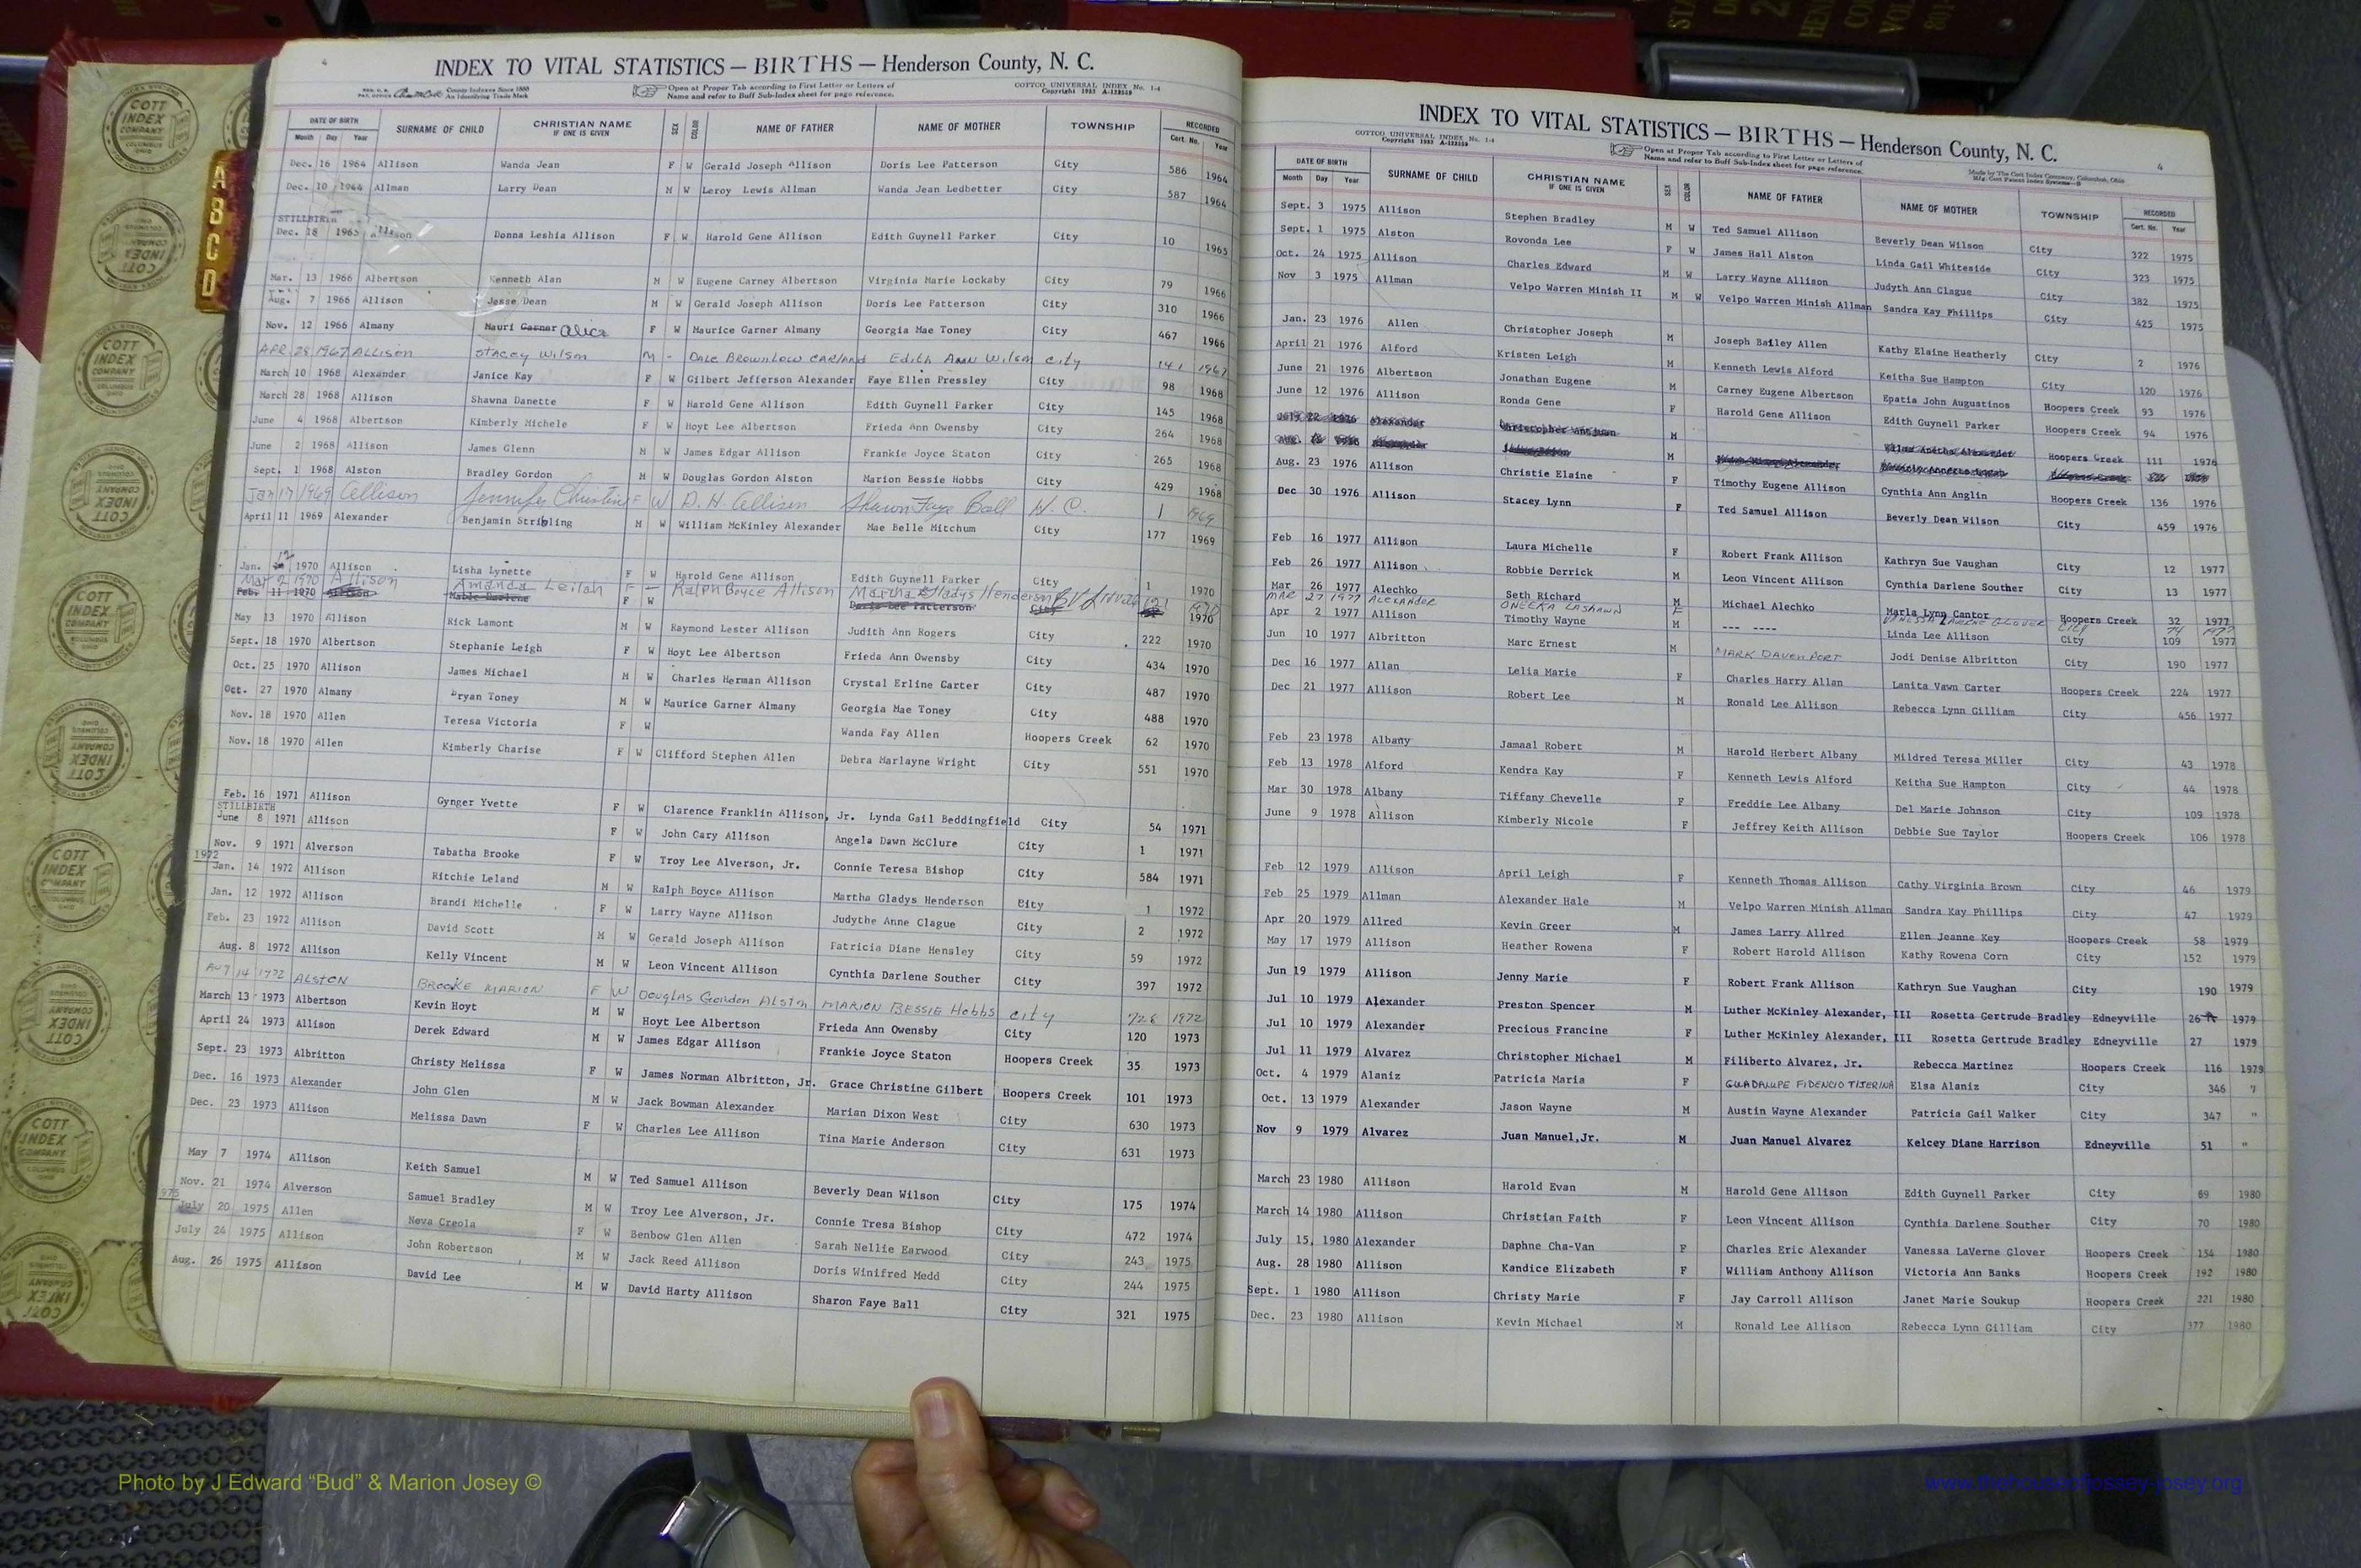 4
INDEX TO VITAL STATISTICS — BIRTHS — Henderson County, N. C.
County Indexes Since 1888 An Identifying Trade Mark
Open at Proper Tab according to First Letter or Letters of Name and refer to Buff Sub-Index sheet for page reference.
COTTCO UNIVERSAL INDEX No. 1-4
DATE OF BIRTH Month Day Year SURNAME OF CHILD CHRISTIAN NAME IF ONE IS GIVEN SEX COLOR NAME OF FATHER NAME OF MOTHER TOWNSHIP RECORDED Cert. No. Year
Dec. 16 1964 Allison Wanda Jean F W Gerald Joseph Allison Doris Lee Patterson City 586 1964
Dec. 10 1964 Allman Larry Dean M W Leroy Lewis Allman Wanda Jean Ledbetter City 587 1964
STILLBIRTH
Dec. 18 1965 Allison Donna Leshia Allison F W Harold Gene Allison Edith Guynell Parker City 10 1965
Mar. 13 1966 Albertson Kenneth Alan M W Eugene Carney Albertson Virginia Marie Lockaby City 79 1966
Aug. 7 1966 Allison Jesse Dean M W Gerald Joseph Allison Doris Lee Patterson City 310 1966
Nov. 12 1966 Almany Mauri Garner Alice F W Maurice Garner Almany Georgia Mae Toney City 467 1966
APR 28 1967 ALLISON Stacey Wilson M - DALE BROWNLOW CARLAND Edith ANN Wilson City 141 1967
March 10 1968 Alexander Janice Kay F W Gilbert Jefferson Alexander Faye Ellen Pressley City 98 1968
March 28 1968 Allison Shawna Danette F W Harold Gene Allison Edith Guynell Parker City 145 1968
June 4 1968 Albertson Kimberly Michele F W Hoyt Lee Albertson Frieda Ann Owensby City 264 1968
June 2 1968 Allison James Glenn M W James Edgar Allison Frankie Joyce Staton City 265 1968
Sept. 1 1968 Alston Bradley Gordon M W Douglas Gordon Alston Marion Bessie Hobbs City 429 1968
Jan 17 1969 Allison Jennifer Christine F W D. H. Allison Sharon Faye Ball H. C. 1 1969
April 11 1969 Alexander Benjamin Stribling M W William McKinley Alexander Mae Belle Mitchum City 177 1969
Jan. 12 1970 Allison Lisha Lynette F W Harold Gene Allison Edith Guynell Parker City 1 1970
Mar 2 1970 Allison Amanda Leilah F - Ralph Boyce Allison Martha Gladys Henderson 1970
Feb. 11 1970 Allison Mable Darlene F W Doris Lee Patterson City 1970
May 13 1970 Allison Rick Lamont M W Raymond Lester Allison Judith Ann Rogers City 222 1970
Sept. 18 1970 Albertson Stephanie Leigh F W Hoyt Lee Albertson Frieda Ann Owensby City 434 1970
Oct. 25 1970 Allison James Michael M W Charles Herman Allison Crystal Erline Carter City 487 1970
Oct. 27 1970 Almany Bryan Toney M W Maurice Garner Almany Georgia Mae Toney City 488 1970
Nov. 18 1970 Allen Teresa Victoria F W Wanda Fay Allen Hoopers Creek 62 1970
Nov. 18 1970 Allen Kimberly Charise F W Clifford Stephen Allen Debra Marlayne Wright City 551 1970
Feb. 16 1971 Allison Gynger Yvette F W Clarence Franklin Allison, Jr. Lynda Gail Beddingfield City 54 1971
STILLBIRTH
June 8 1971 Allison F W John Cary Allison Angela Dawn McClure City 1 1971
Nov. 9 1971 Alverson Tabatha Brooke F W Troy Lee Alverson, Jr. Connie Teresa Bishop City 584 1971
1972
Jan. 14 1972 Allison Ritchie Leland M W Ralph Boyce Allison Martha Gladys Henderson City 1 1972
Jan. 12 1972 Allison Brandi Michelle F W Larry Wayne Allison Judythe Anne Clague City 2 1972
Feb. 23 1972 Allison David Scott M W Gerald Joseph Allison Patricia Diane Hensley City 59 1972
Aug. 8 1972 Allison Kelly Vincent M W Leon Vincent Allison Cynthia Darlene Souther City 397 1972
Aug 14 1972 ALSTON BROOKE MARION F W Douglas Gordon Alston MARION BESSIE Hobbs City 1972
March 13 1973 Albertson Kevin Hoyt M W Hoyt Lee Albertson Frieda Ann Owensby City 120 1973
April 24 1973 Allison Derek Edward M W James Edgar Allison Frankie Joyce Staton Hoopers Creek 35 1973
Sept. 23 1973 Albritton Christy Melissa F W James Norman Albritton, Jr. Grace Christine Gilbert Hoopers Creek 101 1973
Dec. 16 1973 Alexander John Glen M W Jack Bowman Alexander Marian Dixon West City 630 1973
Dec. 23 1973 Allison Melissa Dawn F W Charles Lee Allison Tina Marie Anderson City 631 1973
May 7 1974 Allison Keith Samuel M W Ted Samuel Allison Beverly Dean Wilson City 175 1974
Nov. 21 1974 Alverson Samuel Bradley M W Troy Lee Alverson, Jr. Connie Tresa Bishop City 472 1974
1975
July 20 1975 Allen Neva Creola F W Benbow Glen Allen Sarah Nellie Earwood City 243 1975
July 24 1975 Allison John Robertson M W Jack Reed Allison Doris Winifred Medd City 244 1975
Aug. 26 1975 Allison David Lee M W David Harty Allison Sharon Faye Ball City 321 1975
INDEX TO VITAL STATISTICS — BIRTHS — Henderson County, N. C.
COTTCO UNIVERSAL INDEX No. 1-4
Open at Proper Tab according to First Letter or Letters of Name and refer to Buff Sub-Index sheet for page reference.
Made by The Cott Index Company, Columbus, Ohio
4
DATE OF BIRTH Month Day Year SURNAME OF CHILD CHRISTIAN NAME IF ONE IS GIVEN SEX COLOR NAME OF FATHER NAME OF MOTHER TOWNSHIP RECORDED Cert. No. Year
Sept. 3 1975 Allison Stephen Bradley M W Ted Samuel Allison Beverly Dean Wilson City 322 1975
Sept. 1 1975 Alston Rovonda Lee F W James Hall Alston Linda Gail Whiteside City 323 1975
Oct. 24 1975 Allison Charles Edward M W Larry Wayne Allison Judyth Ann Clague City 382 1975
Nov 3 1975 Allman Velpo Warren Minish II M W Velpo Warren Minish Allman Sandra Kay Phillips City 425 1975
Jan. 23 1976 Allen Christopher Joseph M Joseph Bailey Allen Kathy Elaine Heatherly City 2 1976
April 21 1976 Alford Kristen Leigh M Kenneth Lewis Alford Keitha Sue Hampton City 120 1976
June 21 1976 Albertson Jonathan Eugene M Carney Eugene Albertson Epatia John Augustinos Hoopers Creek 93 1976
June 12 1976 Allison Ronda Gene F Harold Gene Allison Edith Guynell Parker Hoopers Creek 94 1976
July 22 1976 Alexander Christopher M Alexander Hoopers Creek 111 1976
M
Aug. 23 1976 Allison Christie Elaine F Timothy Eugene Allison Cynthia Ann Anglin Hoopers Creek 136 1976
Dec 30 1976 Allison Stacey Lynn F Ted Samuel Allison Beverly Dean Wilson City 459 1976
Feb 16 1977 Allison Laura Michelle F Robert Frank Allison Kathryn Sue Vaughan City 12 1977
Feb 26 1977 Allison Robbie Derrick M Leon Vincent Allison Cynthia Darlene Souther City 13 1977
Mar 26 1977 Alechko Seth Richard M Michael Alechko Marla Lynn Cantor Hoopers Creek 32 1977
MAR 27 1977 ALEXANDER ONEEKA LASHAWN F VANESSA LAVERNE GLOVER City 74 1977
Apr 2 1977 Allison Timothy Wayne M --- ---- Linda Lee Allison City 109 1977
Jun 10 1977 Albritton Marc Ernest M MARK DAVENPORT Jodi Denise Albritton City 190 1977
Dec 16 1977 Allan Lelia Marie F Charles Harry Allan Lanita Vawn Carter Hoopers Creek 224 1977
Dec 21 1977 Allison Robert Lee M Ronald Lee Allison Rebecca Lynn Gilliam City 456 1977
Feb 23 1978 Albany Jamaal Robert M Harold Herbert Albany Mildred Teresa Miller City 43 1978
Feb 13 1978 Alford Kendra Kay F Kenneth Lewis Alford Keitha Sue Hampton City 44 1978
Mar 30 1978 Albany Tiffany Chevelle F Freddie Lee Albany Del Marie Johnson City 109 1978
June 9 1978 Allison Kimberly Nicole F Jeffrey Keith Allison Debbie Sue Taylor Hoopers Creek 106 1978
Feb 12 1979 Allison April Leigh F Kenneth Thomas Allison Cathy Virginia Brown City 46 1979
Feb 25 1979 Allman Alexander Hale M Velpo Warren Minish Allman Sandra Kay Phillips City 47 1979
Apr 20 1979 Allred Kevin Greer M James Larry Allred Ellen Jeanne Key Hoopers Creek 58 1979
May 17 1979 Allison Heather Rowena F Robert Harold Allison Kathy Rowena Corn City 152 1979
Jun 19 1979 Allison Jenny Marie F Robert Frank Allison Kathryn Sue Vaughan City 190 1979
Jul 10 1979 Alexander Preston Spencer M Luther McKinley Alexander, III Rosetta Gertrude Bradley Edneyville 26 1979
Jul 10 1979 Alexander Precious Francine F Luther McKinley Alexander, III Rosetta Gertrude Bradley Edneyville 27 1979
Jul 11 1979 Alvarez Christopher Michael M Filiberto Alvarez, Jr. Rebecca Martinez Hoopers Creek 116 1979
Oct. 4 1979 Alaniz Patricia Maria F GUADALUPE FIDENCIO TIJERINA Elsa Alaniz City 346 "
Oct. 13 1979 Alexander Jason Wayne M Austin Wayne Alexander Patricia Gail Walker City 347 "
Nov 9 1979 Alvarez Juan Manuel,Jr. M Juan Manuel Alvarez Kelcey Diane Harrison Edneyville 51 "
March 23 1980 Allison Harold Evan M Harold Gene Allison Edith Guynell Parker City 69 1980
March 14 1980 Allison Christian Faith F Leon Vincent Allison Cynthia Darlene Souther City 70 1980
July 15, 1980 Alexander Daphne Cha-Van F Charles Eric Alexander Vanessa LaVerne Glover Hoopers Creek 154 1980
Aug. 28 1980 Allison Kandice Elizabeth F William Anthony Allison Victoria Ann Banks Hoopers Creek 192 1980
Sept. 1 1980 Allison Christy Marie F Jay Carroll Allison Janet Marie Soukup Hoopers Creek 221 1980
Dec. 23 1980 Allison Kevin Michael M Ronald Lee Allison Rebecca Lynn Gilliam City 377 1980
A
B
C
D
COTT INDEX COMPANY COLUMBUS OHIO
Photo by J Edward “Bud” & Marion Josey ©
www.thehouseofjossey-josey.org